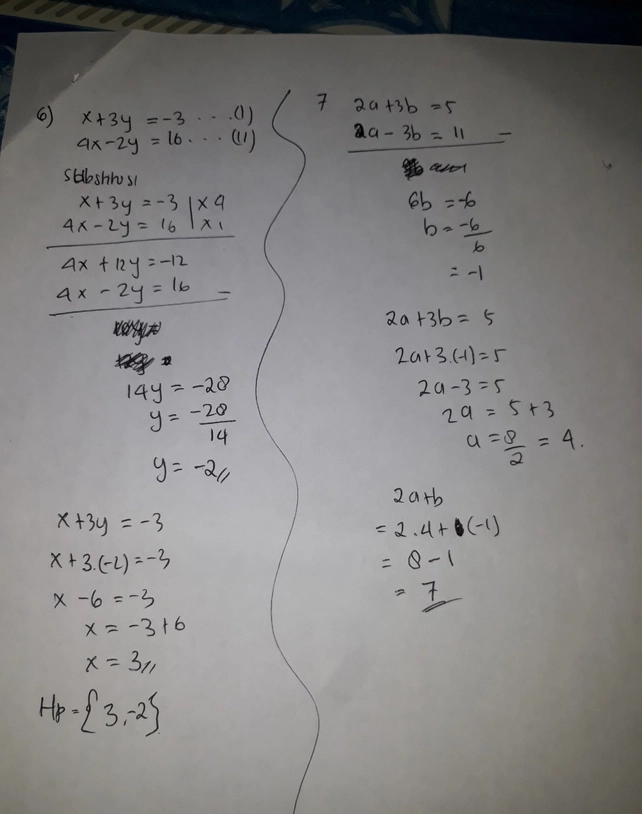 6) x+3y = -3 ... (I)
4x-2y = 16 ... (II)
x+3y = -3 | x4
4x-2y = 16 | x1
4x + 12y = -12
4x - 2y = 16 -
14y = -28
y = -28/14
y = -2//
x+3y = -3
x+3.(-2) = -3
x - 6 = -3
x = -3+6
x = 3//
Hp = {3,-2}
7 2a+3b = 5
2a - 3b = 11 -
6b = -6
b = -6/6
= -1
2a+3b = 5
2a+3.(-1) = 5
2a - 3 = 5
2a = 5+3
a = 8/2 = 4.
2a+b
= 2.4+(-1)
= 8-1
= 7